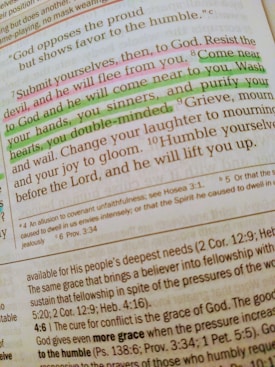 position
ing but does another.
e-playing, no mask weari
"God opposes the proud
but shows favor to the humble." c
7 Submit yourselves, then, to God. Resist the
devil, and he will flee from you. 8 Come near
to God and he will come near to you. Wash
your hands, you sinners, and purify your
hearts, you double-minded. 9 Grieve, mourn
and wail. Change your laughter to mourning
and your joy to gloom. 10 Humble yourselves
before the Lord, and he will lift you up.
a 4 An allusion to covenant unfaithfulness; see Hosea 3:1. b 5 Or that the
caused to dwell in us envies intensely; or that the Spirit he caused to dwell in
jealously c 6 Prov. 3:34
available for His people's deepest needs (2 Cor. 12:9; Heb
The same grace that brings a believer into fellowship with
sustain that fellowship in spite of the pressures of the wo
5:20; 2 Cor. 12:9; Heb. 4:16).
4:6 | The cure for conflict is the grace of God. The good
God gives even more grace when the pressure increas
to the humble (Ps. 138:6; Prov. 3:34; 1 Pet. 5:5). Go
responsive to the prayers of those who humbly reque